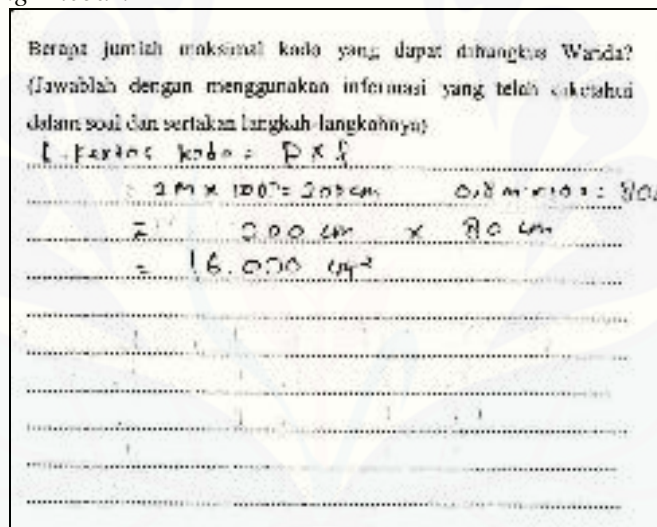 Berapa jumlah maksimal kado yang dapat dibungkus Wanda?
(Jawablah dengan menggunakan informasi yang telah diketahui
dalam soal dan sertakan langkah-langkahnya)
L. Kertas kado = P x l
: 2 m x 100 = 200 cm 0,8 m x 100 = 80
= 200 cm x 80 cm
= 16.000 cm²